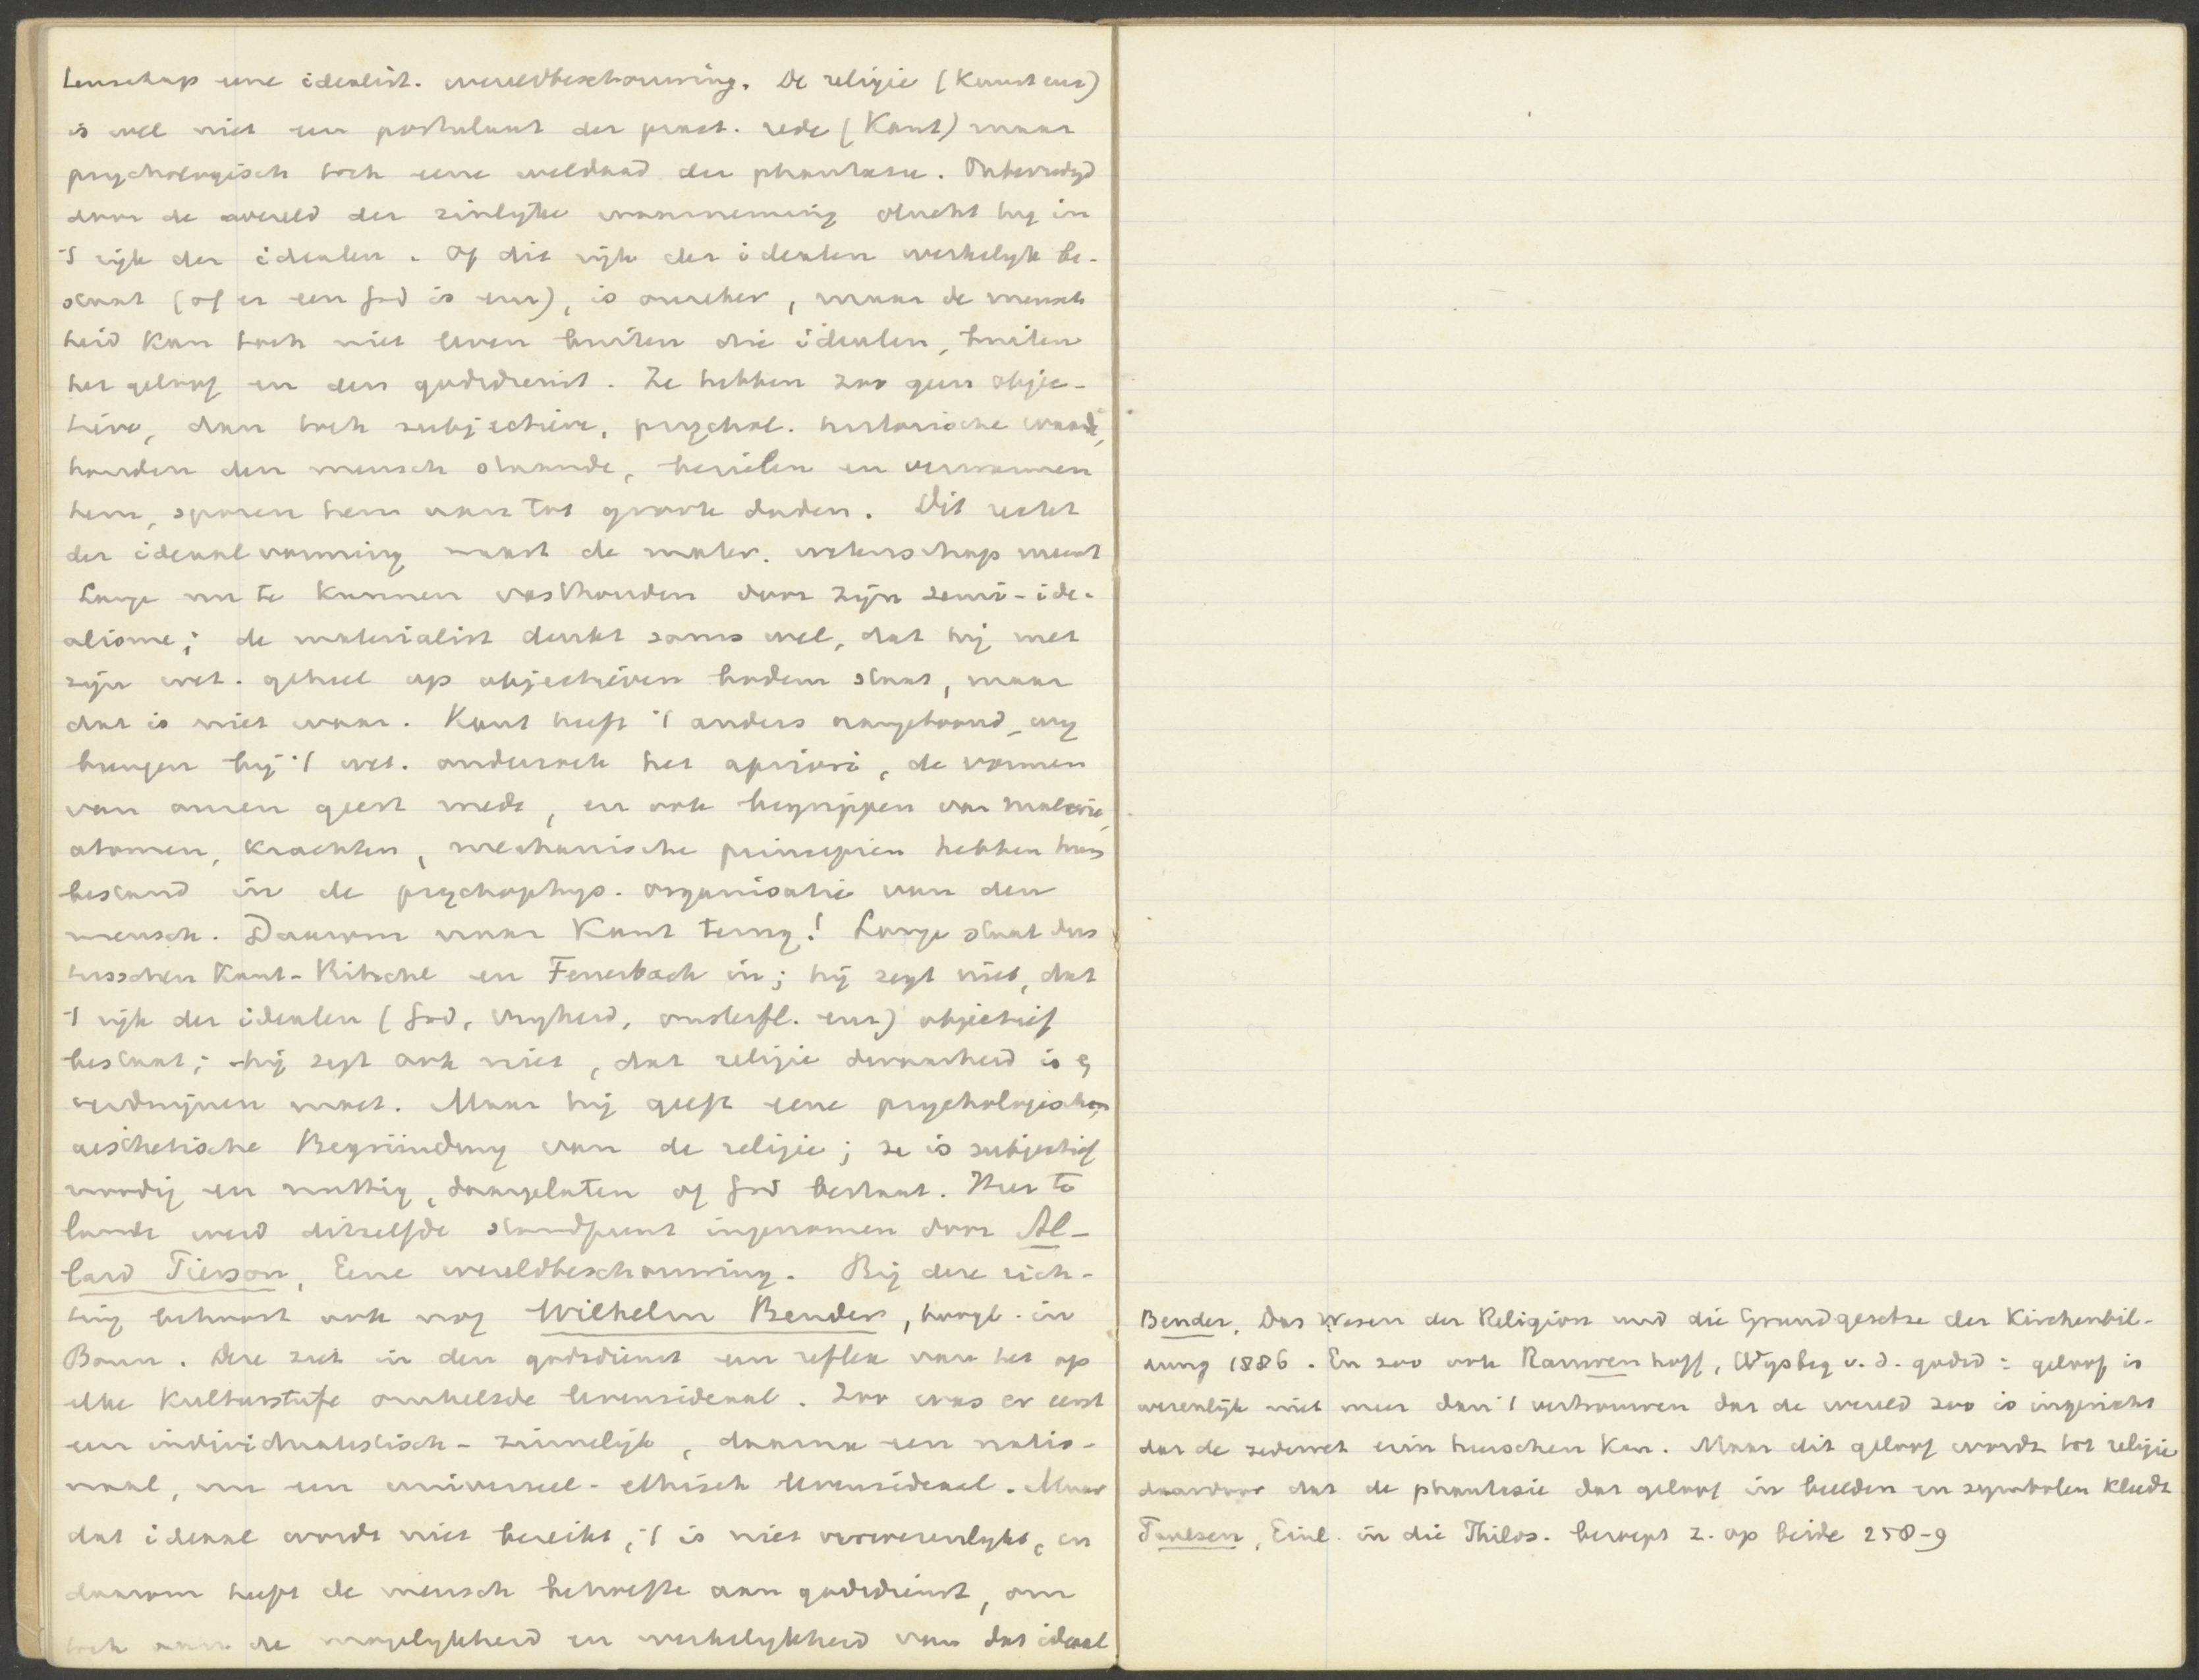 tenschap eene idealist. wereldbeschouwing. De religie (Kunst enz)
is wel niet een postulaat der pract. rede (Kant) maar
psychologisch toch eene weldaad der phantasie. Onbevredigd
door de wereld der zinlyke waarneming vlucht hy in
't ryk der idealen. Of dit ryk der idealen werkelyk be-
staat (of er een God is enz), is onzeker, maar de mensch
heid kan toch niet leven buiten die idealen, buiten
het geloof en den godsdienst. Ze hebben zoo geen objec-
tieve, dan toch subjectieve, psychol. historische waarde,
houden den mensch staande, bezielen en verwarmen
hem, sporen hem aan tot groote daden. Dit recht
der ideaalvorming naast de mater. wetenschap meent
Lange nu te kunnen vasthouden door zijn semi-ide-
alisme; de materialist denkt soms wel, dat hij met
zijn wet. geheel op objectieven bodem staat, maar
dat is niet waar. Kant heeft 't anders aangetoond, wy
brengen bij 't wet. onderzoek het apriori, de vormen
van onzen geest mede, en ook begrippen van materie,
atomen, krachten, mechanische principien hebben hun
bestand in de psychophys. organisatie van den
mensch. Daarom naar Kant terug! Lange staat dus
tusschen Kant-Ritschl en Feuerbach in; hij zegt niet, dat
't ryk der idealen (God, vryheid, onsterfl. enz) objectief
bestaat; hij zegt ook niet, dat religie dwaasheid is &
verdwijnen moet. Maar hij geeft eene psychologische,
aesthetische Begründung van de religie; ze is subjectief
noodig en nuttig, daargelaten of God bestaat. Hier te
lande werd ditzelfde standpunt ingenomen door Al-
lard Pierson, Eene wereldbeschouwing. Bij deze rich-
ting behoort ook nog Wilhelm Bender, hoogl. in
Bonn. Deze ziet in den godsdienst een reflex van het op
elke Kulturstufe omhelsde levensideaal. Zoo was er eerst
een individualistisch-zinnelijk, daarna een natio-
naal, nu een universeel-ethisch levensideaal. Maar
dat ideaal wordt niet bereikt, 't is niet verwezenlykt, en
daarom heeft de mensch behoefte aan godsdienst, om
toch aan de mogelykheid en werkelykheid van dat ideaal
Bender, Das Wesen der Religion und die Grundgesetze der Kirchenbil-
dung 1886. En zoo ook Rauwenhoff, Wysbeg v. d. godsd: geloof is
wezenlijk niet meer dan 't vertrouwen dat de wereld zoo is ingericht
dat de zedewet erin heerschen kan. Maar dit geloof wordt tot religie
daardoor dat de phantasie dat geloof in beelden en symbolen kleedt
Paulsen, Einl. in die Philos. beroept z. op beide 258-9